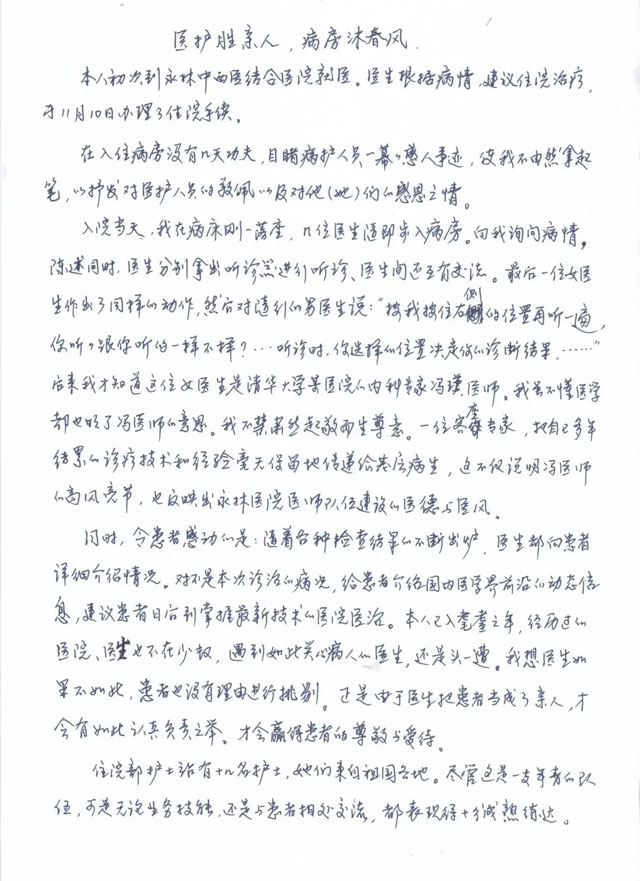 医护胜亲人,病房沐春风.
本人初次到永林中西医结合医院就医。医生根据病情,建议住院治疗,
于11月10日办理了住院手续。
在入住病房没有几天功夫,目睹病护人员一幕幕感人事迹,使我不由然拿起
笔,以抒发对医护人员的敬佩以及对他(她)们的感恩之情。
入院当天,我在病床刚一落座,几位医生随即步入病房。向我询问病情。
陈述同时,医生分别拿出听诊器进行听诊、医生间还互有交流。最后一位女医
生作出了同样的动作,然后对随行的男医生说:"按我按住右侧的位置再听一遍,
你听々跟你听的一样不样?…听诊时,你选择的位置决定你的诊断结果,……"
后来我才知道这位女医生是清华大学某医院的内科专家冯瑛医师。我虽不懂医学
却也明了冯医师的意思。我不禁肃然起敬而生尊意。一位客座专家,把自己多年
结累的诊疗技术和经验毫无保留地传递给基层病生,这不仅说明冯医师
的高风亮节,也反映出永林医院医师队伍建设的医德与医风。
同时,令患者感动的是:随着各种检查结果的不断出炉,医生都向患者
详细介绍情况。对不是本次诊治的病况,给患者介绍国内医学界前沿的动态信
息,建议患者日后到掌握最新技术的医院医治。本人已入耄耋之年,经历过的
医院、医生也不在少数,遇到如此关心病人的医生,还是头一遭。我想医生如
果不如此,患者也没有理由进行挑剔。正是由于医生把患者当成了亲人,才
会有如此认真负责之举。才会赢得患者的尊敬与爱待。
住院部护士站有十几名护士,她们来自祖国各地。尽管这是一支年青的队
伍,可是无论业务技能,还是与患者相处交流,都表现得十分诚熟练达。